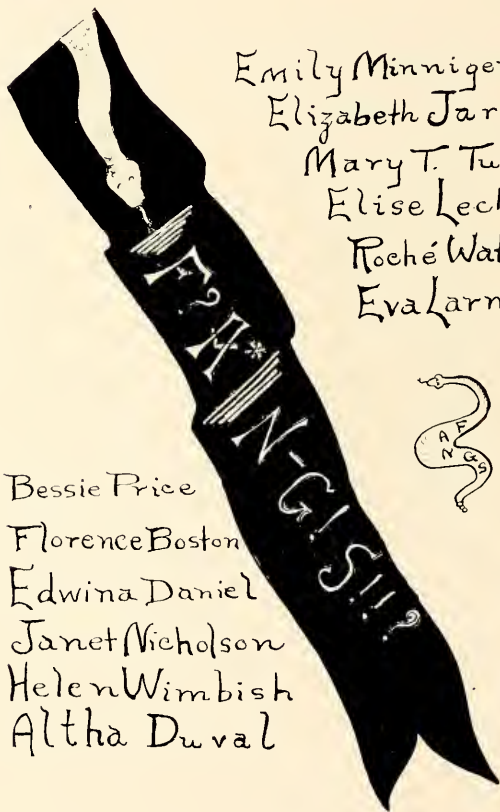 Emily Minnige
Elizabeth Jar
Mary T. Tu
Elise Lec
Roché Wat
Eva Larn
F?A*N-G!S!!?
FANGS
Bessie Price
Florence Boston
Edwina Daniel
Janet Nicholson
Helen Wimbish
Altha Duval